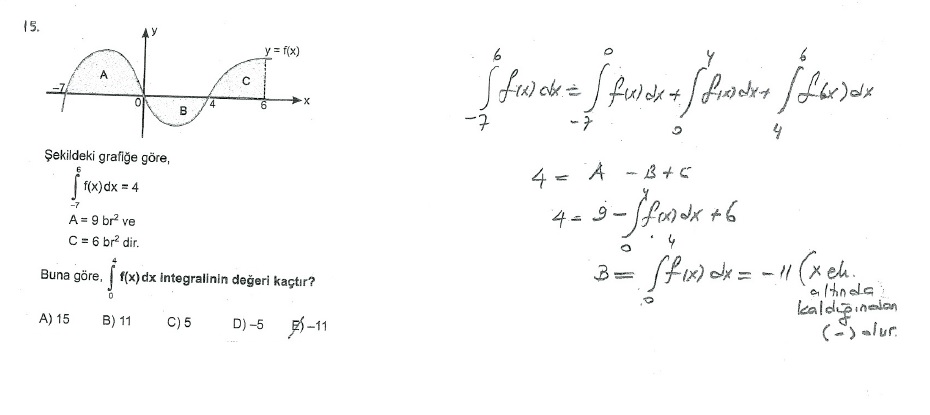 15.
y
y = f(x)
A
C
-7
0
B
4
6
x
Şekildeki grafiğe göre,
6
∫ f(x) dx = 4
-7
A = 9 br² ve
C = 6 br² dir.
Buna göre, ∫₀⁴ f(x) dx integralinin değeri kaçtır?
A) 15 B) 11 C) 5 D) -5 E) -11
∫₋₇⁶ f(x) dx = ∫₋₇⁰ f(x) dx + ∫₀⁴ f(x) dx + ∫₄⁶ f(x) dx
4 = A - B + C
4 = 9 - ∫₀⁴ f(x) dx + 6
B = ∫₀⁴ f(x) dx = -11 (x ek.
altında
kaldığından
(-) olur.